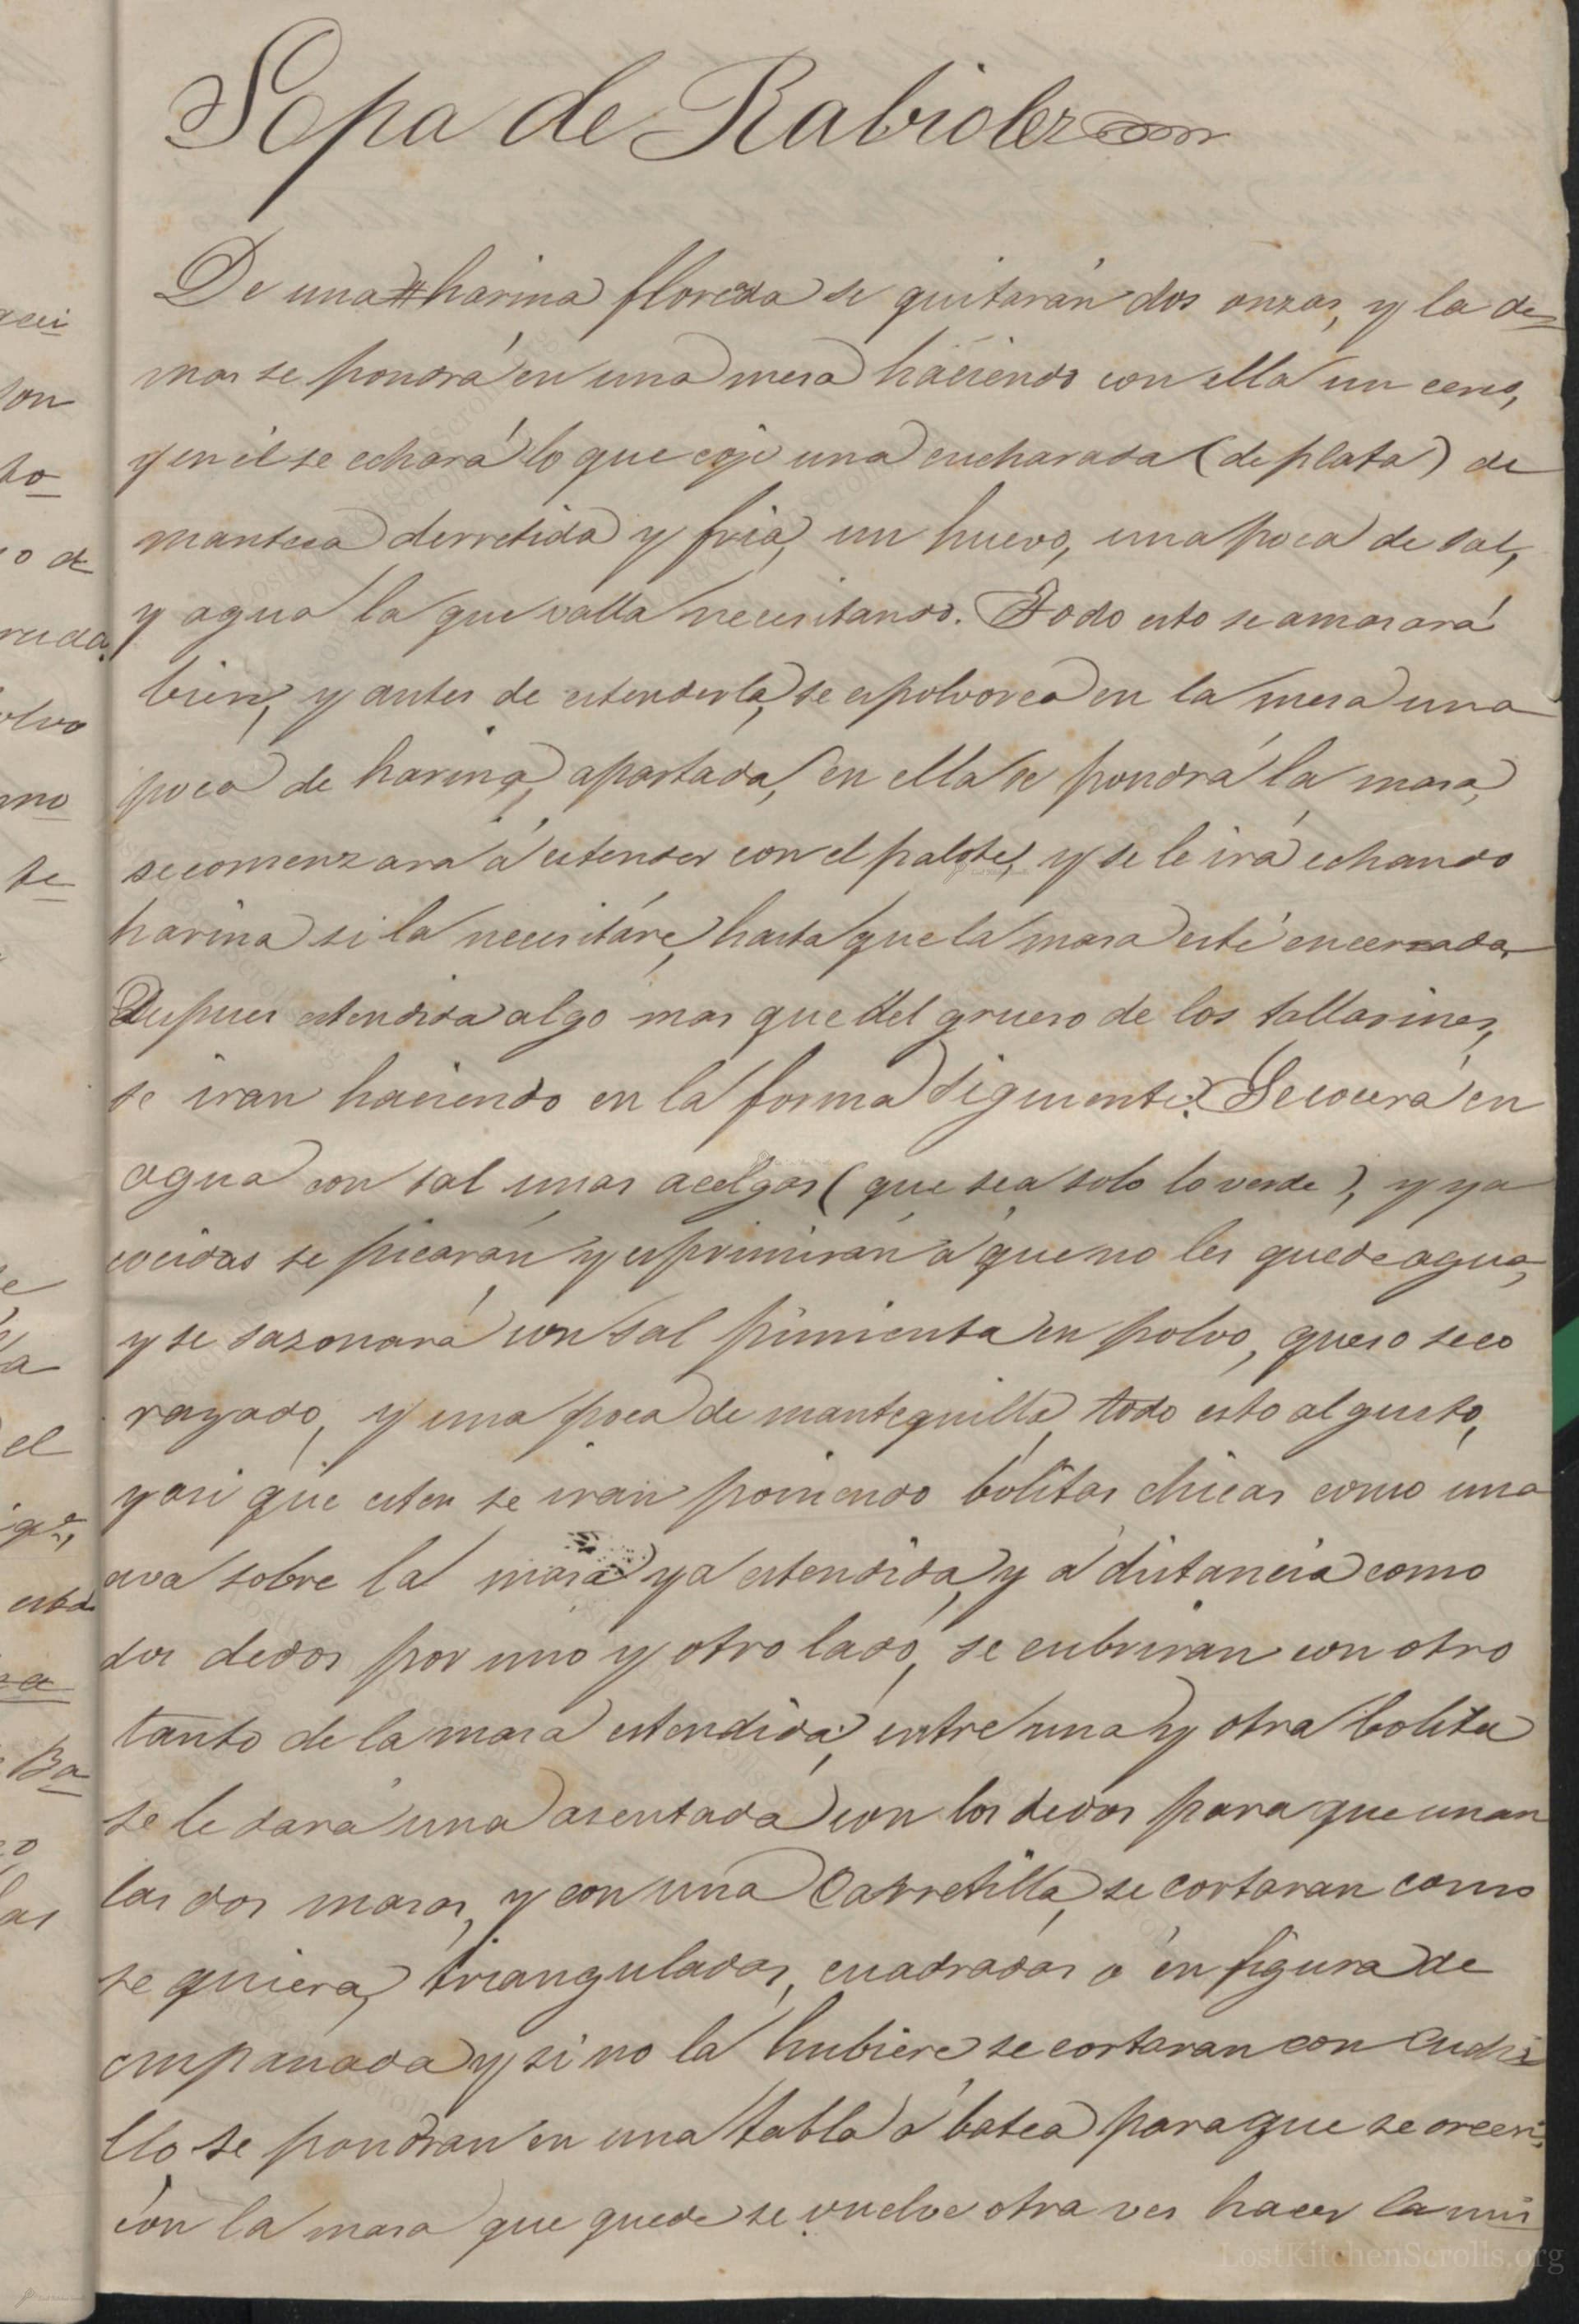 Sopa de Rabioles
De una # harina florera se quitarán dos onzas, y la de=
mas se pondrá en una mesa haciendo con ella un cerco,
y en él se echará lo que coje una cucharada (de plata) de
manteca derretida y fria, un huevo, una poca de sal,
y agua la que valla necesitando. Todo esto se amasará
bien, y antes de estenderla, se espolvorea en la mesa una
poca de harina, apartada, en ella se pondrá la masa,
se comenzara á estender con el palote, y se le irá echando
harina si la necesitáre, hasta que la masa esté encerada,
Despues estendida algo mas que del grueso de los tallarines,
se iran haciendo en la forma siguiente: Se cocerá en
agua con sal unas acelgas (que sea solo lo verde), y ya
cocidas se picarán y esprimirán á que no les quede agua,
y se sazonará con sal pimienta en polvo, queso seco
rayado, y una poca de mantequilla, todo esto al gusto,
y asi que esten se iran poniendo bolitas chicas como una
ava sobre la masa ya estendida, y á distancia como
dos dedos por uno y otro lado, se cubriran con otro
tanto de la masa estendida, entre una y otra bolita
se le dará una asentada con los dedos para que unan
las dos masas, y con una Carretilla, se cortaran como
se quiera, trianguladas, cuadradas o en figura de
empanada y si no la hubiere se cortaran con Cuchi
llo, se pondran en una tabla ó batea para que se oreen,
con la masa que quede se vuelve otra ves hacer la mis
LostKitchenScrolls.org